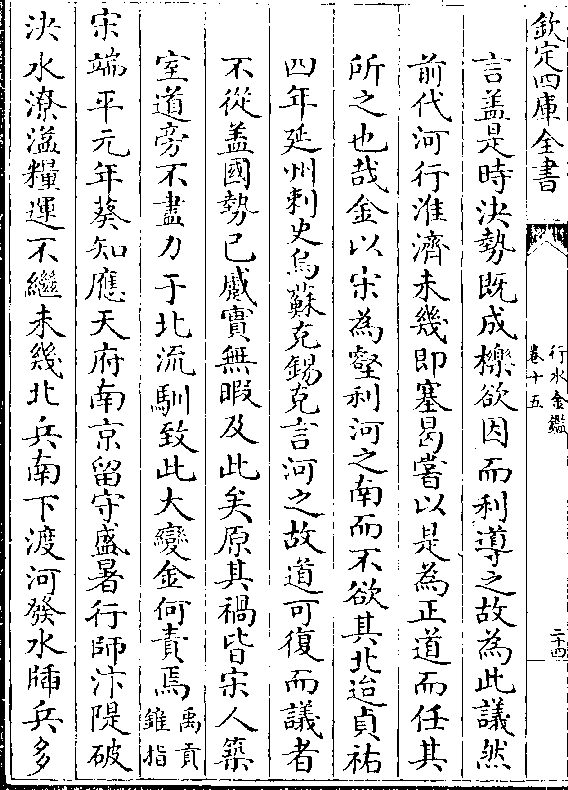 欽定四庫全書
行水金鑑
卷十五
二十四
言盖是時決勢既成櫟欲因而利導之故為此議然
前代河行淮濟未幾即塞曷嘗以是為正道而任其
所之也哉金以宋為壑利河之南而不欲其北迨貞祐
四年延州刺史烏蘇克錫克言河之故道可復而議者
不從盖國勢已蹙實無暇及此矣原其禍皆宋人築
室道旁不盡力于北流馴致此大變金何責焉禹貢錐指
宋端平元年葵知應天府南京留守盛暑行師汴隄破
決水潦溢糧運不繼未幾北兵南下渡河發水牐兵多